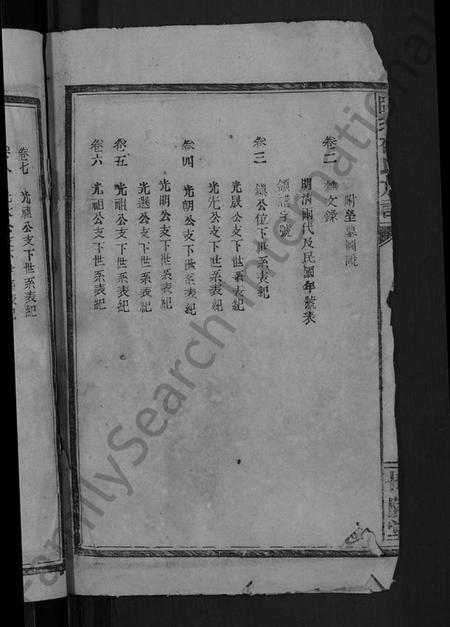 附塋墓圖說
卷二 雜文錄
明清兩代及民國年號表
領譜字號
卷三 鎮公位下世系表紀
光晟公支下世系表紀
光先公支下世系表紀
卷四 光朝公支下世系表紀
光明公支下世系表紀
光選公支下世系表紀
卷五 光祖公支下世系表紀
卷六 光祖公支下世系表紀
卷七 光祖公支下世系表紀
FamilySearch International